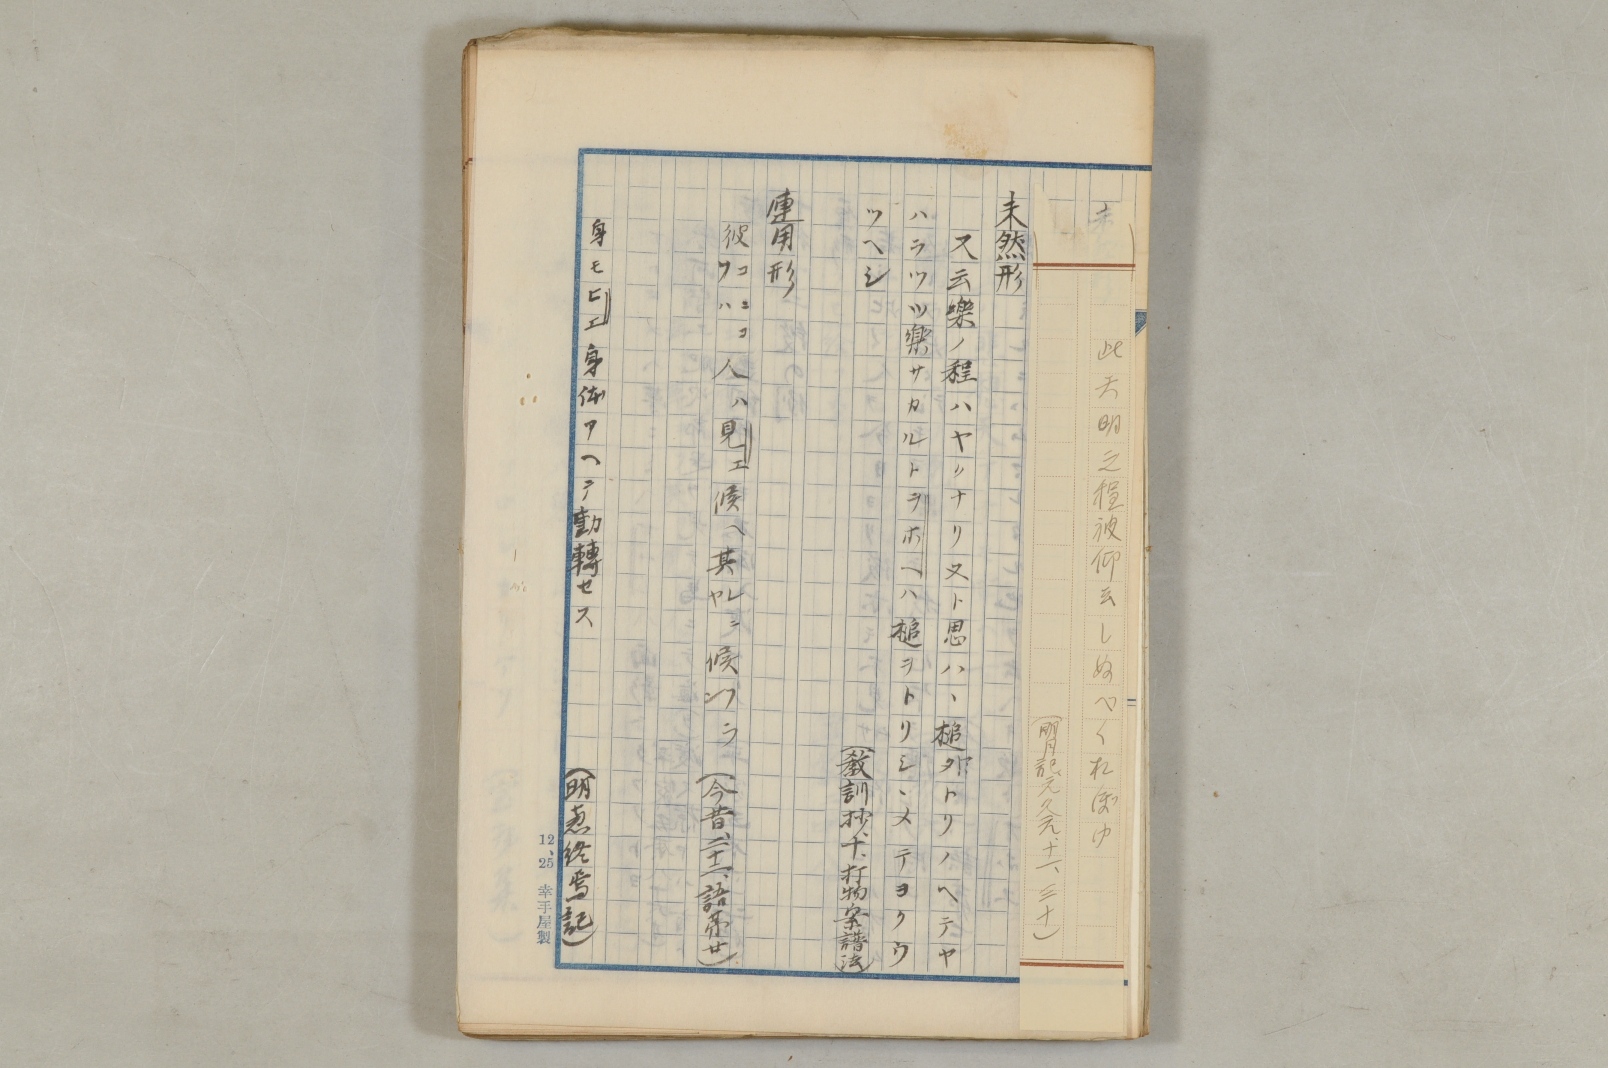 此天明之程被仰云しぬべくおぼゆ
(明月記、元久元、十一、三十)
未然形
又云樂ノ程ハヤリナリ又ト思ハヽ槌ヲトリノヘテヤ
ハラツツ樂サカルトヲホヘハ槌ヲトリシヽメテヨクウ
ツヘシ
(教訓抄、十、打物案譜法)
連用形
彼ココニフハコ人ハ見エ候ヘ其ヤレニ候ンフラ
(今昔、二十一、語第廿)
身モヒエ身体アヘテ動轉セス
(明恵終焉記)
12、25 幸手屋製